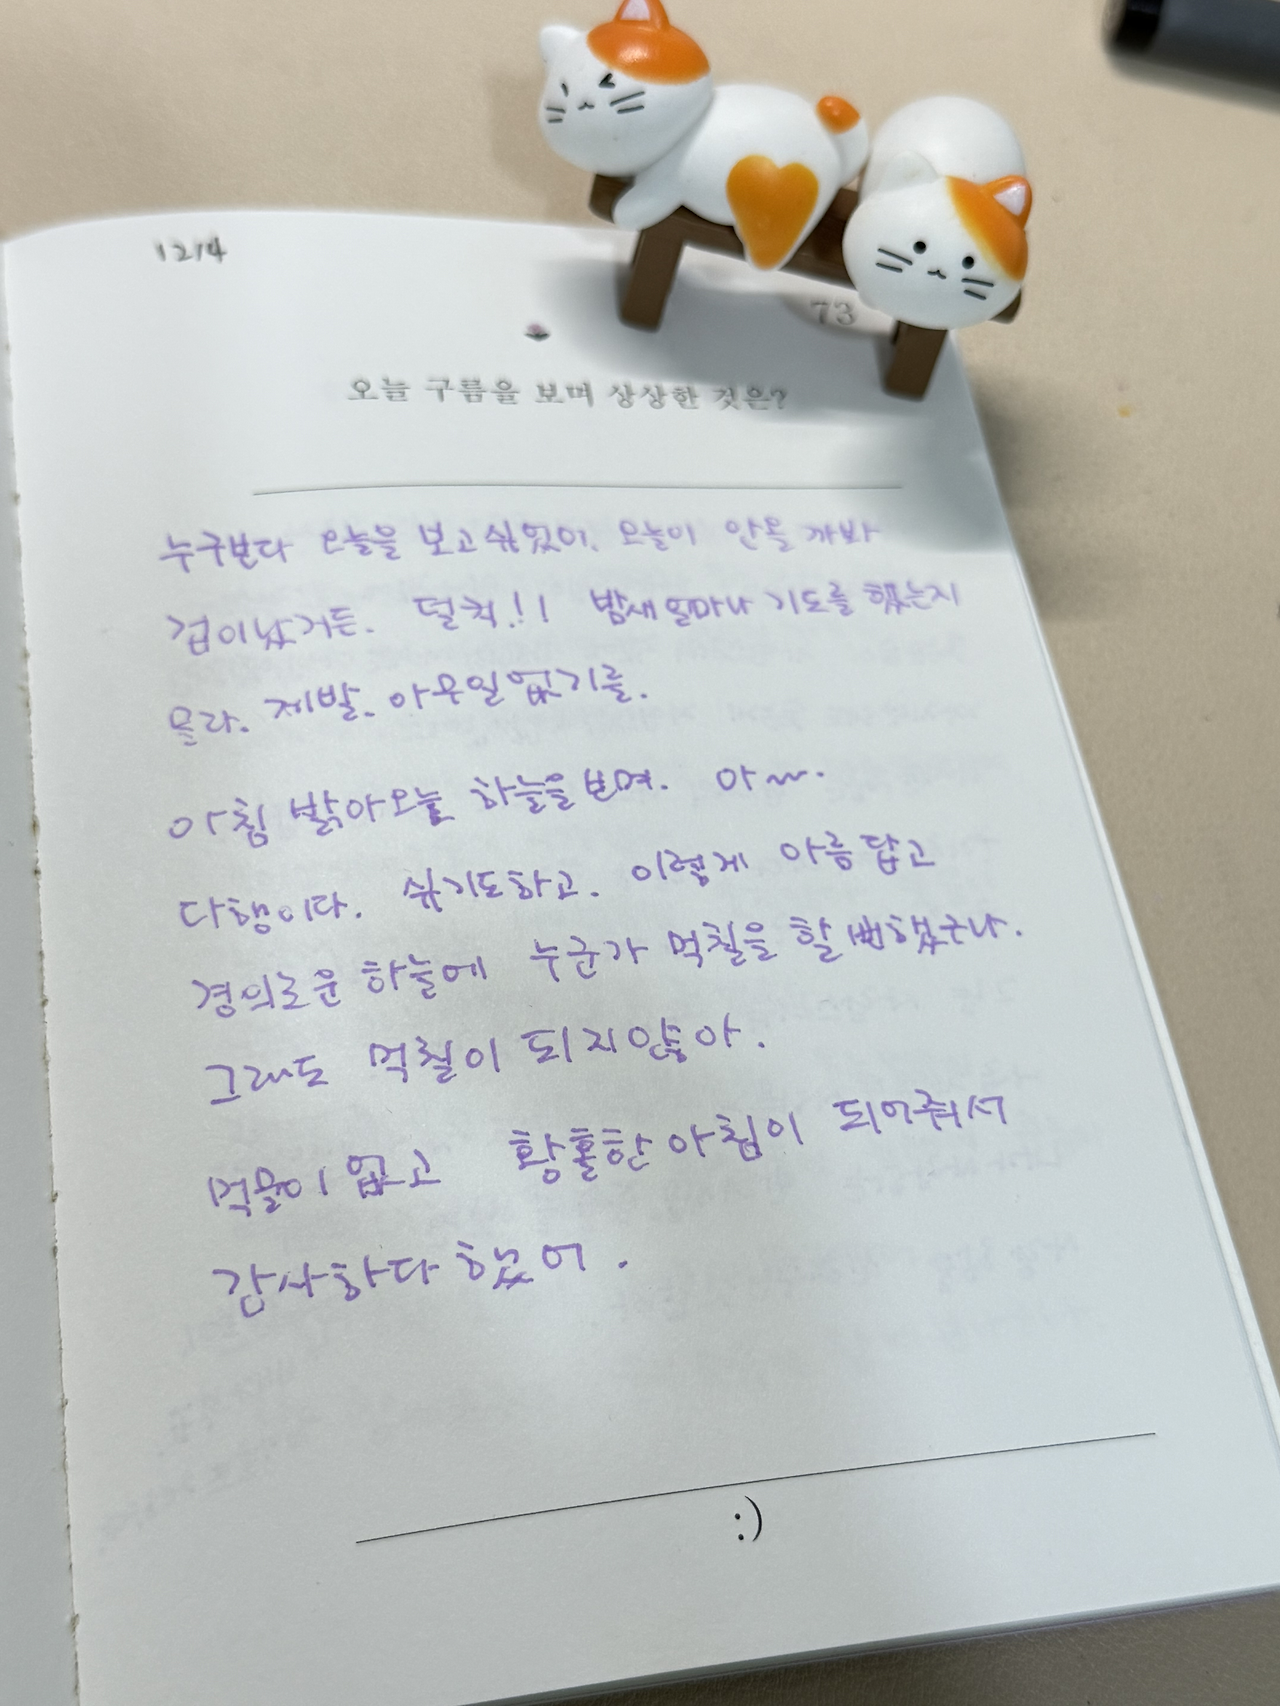 12/4
73
오늘 구름을 보며 상상한 것은?
누구보다 오늘을 보고싶었어. 오늘이 안올 까봐
겁이났거든. 덜컥!! 밤새 얼마나 기도를 했는지
몰라. 제발. 아무일없기를.
아침 밝아오늘 하늘을 보며. 아~~.
다행이다. 쉼기도하고. 이렇게 아름답고
경의로운 하늘에 누군가 먹칠을 할 뻔했구나.
그래도 먹칠이 되지않아.
먹물이 없고 황홀한 아침이 되어줘서
감사하다 했어.
:)